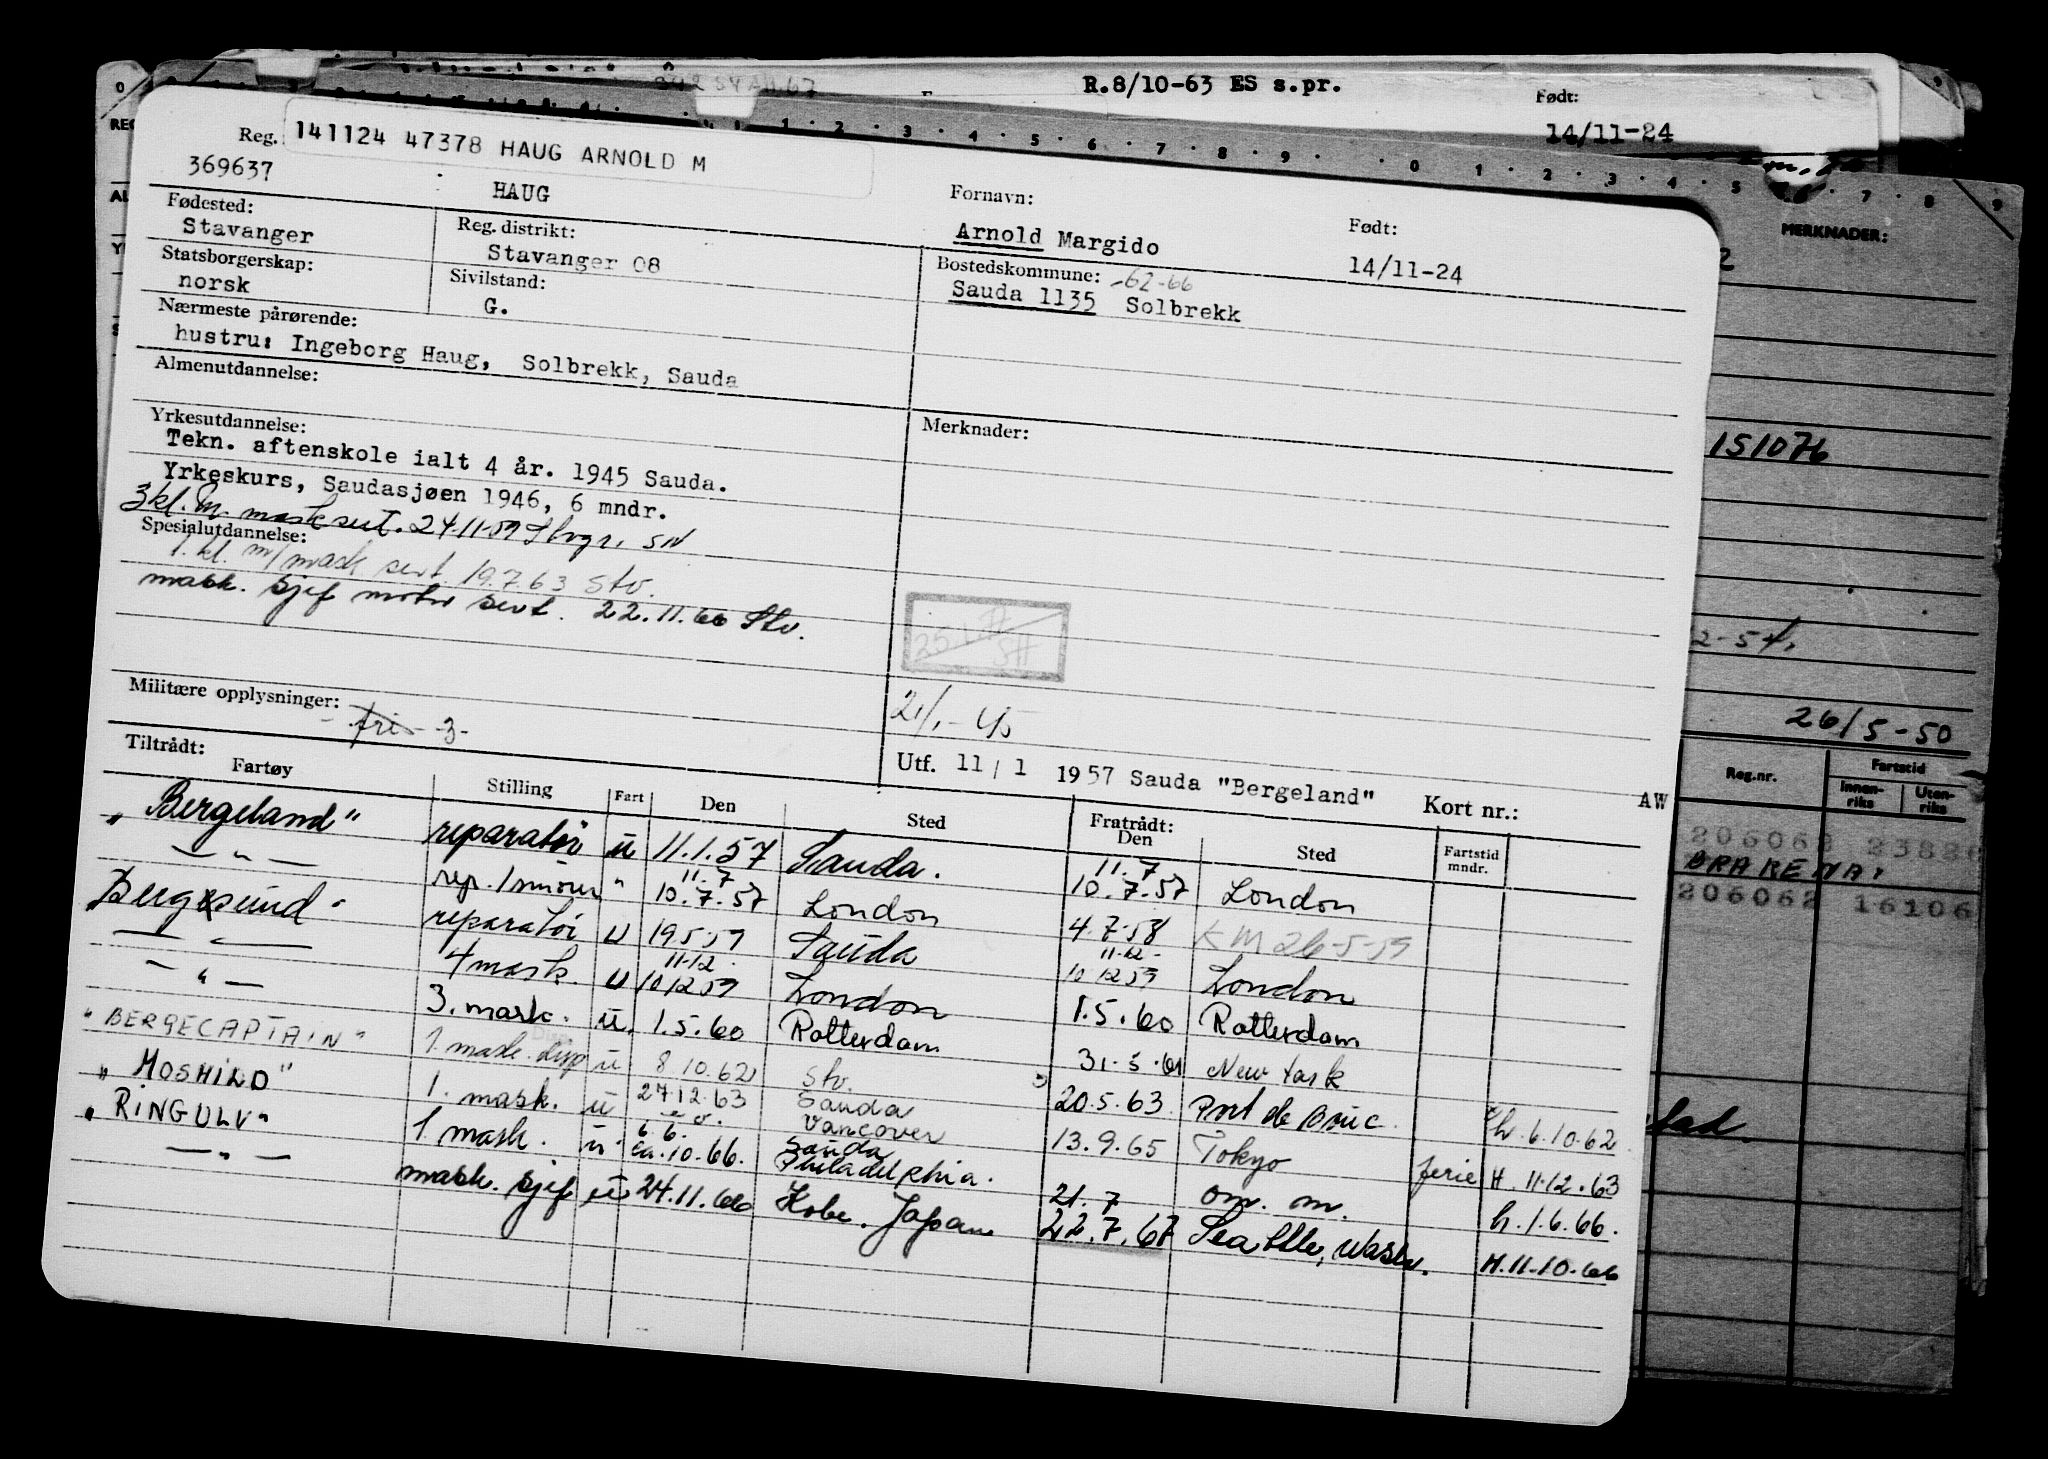 R.8/10-63 ES s.pr.
Født:
14/11-24
MERKNADER:
Reg.
141124 47378 HAUG ARNOLD M
369637
HAUG
Fornavn:
Arnold Margido
Født:
14/11-24
Fødested:
Stavanger
Reg. distrikt:
Stavanger 08
Bostedskommune: -62-66
Sauda 1135 Solbrekk
Statsborgerskap:
norsk
Sivilstand:
G.
Nærmeste pårørende:
hustru: Ingeborg Haug, Solbrekk, Sauda
Almenutdannelse:
Yrkesutdannelse:
Tekn. aftenskole ialt 4 år. 1945 Sauda.
Yrkeskurs, Saudasjøen 1946, 6 mndr.
3 kl. m. mask sert. 24-11-59 Stvgr. SN
Merknader:
Spesialutdannelse:
1. kl. m/mask sert. 19.7.63 Stv.
mask. sjef motor sert. 22.11.66 Stv.
Militære opplysninger:
- fri - 3-
21/1-45
Utf. 11/1 1957 Sauda "Bergeland"
Kort nr.:
AW
Tiltrådt:
Fartøy
Stilling
Fart
Den
Sted
Fratrådt:
Den
Sted
Fartstid
mndr.
"Bergeland" reparatør u 11.1.57 Sauda. 11.7 10.7.57 London
— " — rep./smører " 11.7 10.7.57 London 4.7.58 KM 26-5-59
Bergesund" reparatør u 19.5.59 Sauda 11.12 10 12 59 London
— — 4 mask. u 11.12. 10 12 59 London 1.5.60 Rotterdam
— " — 3. mask. u. 1.5.60 Rotterdam 31.5.61 New York
"BERGECAPTAIN" 1. mask. disp u 8.10.62 Stv. 20.5.63 Port de Bouc. h. 6.10.62
"HOSHILD" 1. mask. u 27.12.63 Sauda Vancover 13.9.65 Tokyo ferie H. 11.12.63
"RINGULV" 1. mask. u 6.6. ca.10.66. Sauda Philadelphia. 21.7 om. m. h. 1.6.66.
— " — mask. sjef u 24.11.66 Kobe. Japan 22.7.67 Seattle, Wash. H. 11.10.66
151076
2-54.
26/5-50
Reg.nr.
Fartstid
Innen-
riks
Uten-
riks
206062 23826
BRAREMA.
206062 16106